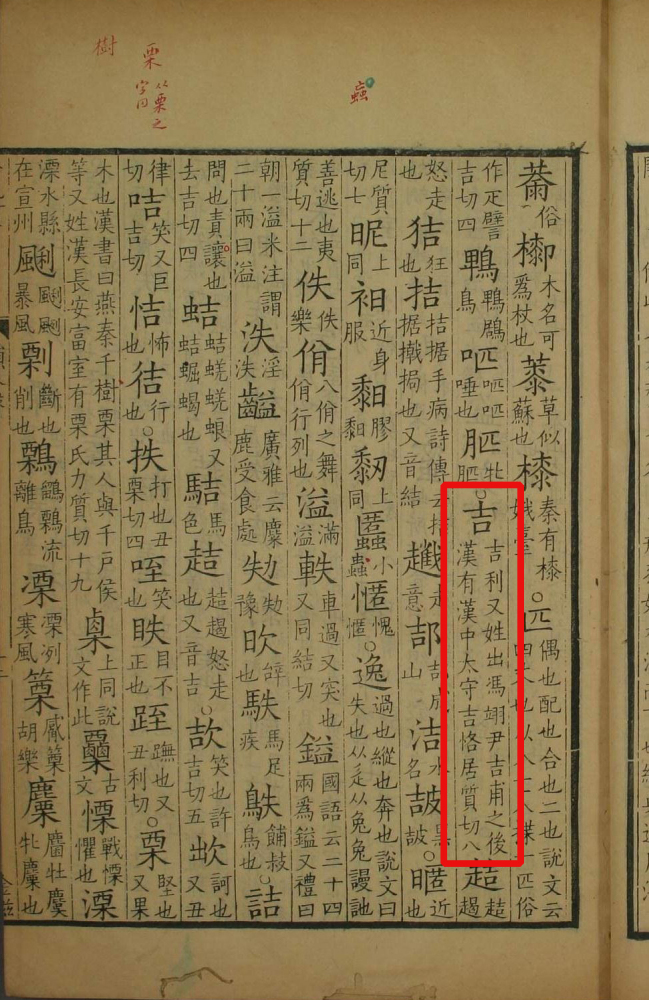 俗楖木名可爲杖也草似蘇也㯃秦有㯃娥臺○匹偶也配也合也二也說文云四丈也从八匸八揲一匹俗
作疋譬吉切四鴄鳥唾也牝○吉吉利又姓出馮翊尹吉甫之後漢有漢中太守吉恪居質切八趌趌趨
怒走也狤狂也拮拮据手病詩傳云拮据撠挶也又音結走意郆山洁水名黑○暱近也
尼質切七昵上同衵近身服䵒膠䵒上同小蟲愧○逸過也縱也奔也說文曰失也从辵从兔兔謾訑
善逃也夷質切十二佚佚樂佾八佾之舞佾行列也溢滿溢軼車過又突也又同結切鎰國語云二十四兩爲鎰又禮曰
朝一溢米注謂二十兩曰溢泆淫泆齸廣雅云麋鹿受食處劮劮豫欥辝駃馬足疾鴃鋪豉鳥也○詰
問也責讓也去吉切四蛣蛣蜣蜣蜋又蛣蝎也馬色趌趌趨怒走也又音吉○欯笑也許吉切五欪訶也又丑
律切咭笑又巨吉切怖也行也○抶打也丑栗切四咥笑也眣目不正也跮也又丑利切○栗堅也又果
木也漢書曰燕秦千樹栗其人與千戶侯等又姓漢長安富室有栗氏力質切十九㮚上同說文作此古文慄戰慄懼也溧
溧水縣在宣州颲颲颲暴風㔀斷也削也鷅鶹鷅流離鳥凓凓冽寒風篥觱篥胡樂麜麕牡麜牝麜也
蝨
栗 从㮚之字同
樹